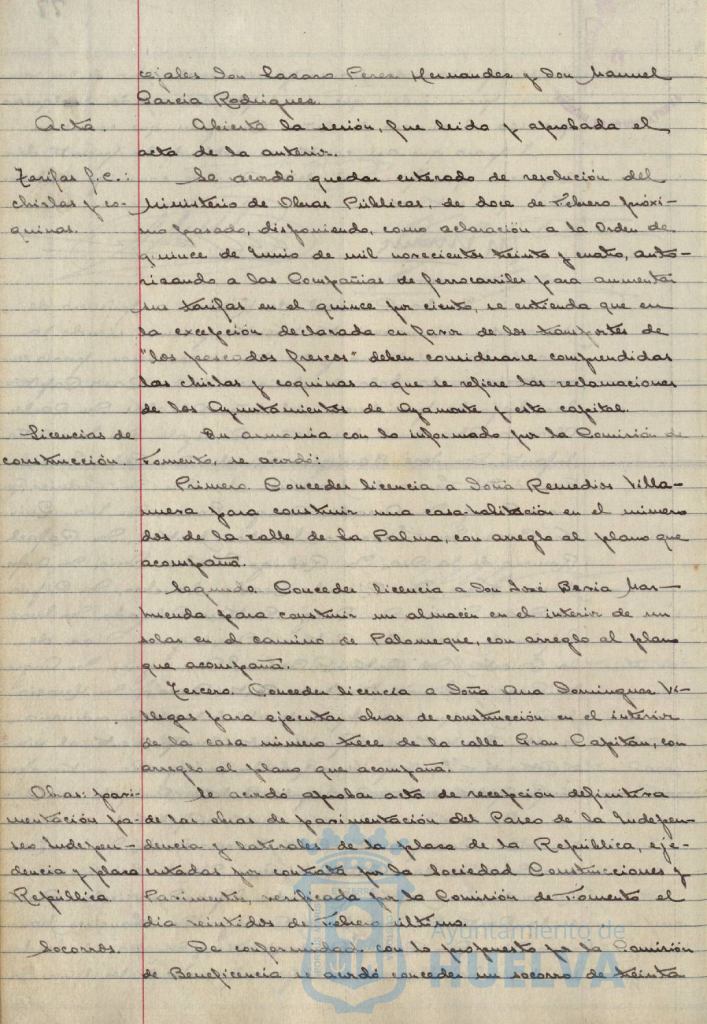 cejales Don Lazaro Perez Hernandez y Don Manuel
Garcia Rodriguez.
Acta.
Abierta la sesión, fue leida y aprobada el
acta de la anterior.
Tarifas f.c.:
chirlas y co-
quinas.
Se acordó quedar enterado de resolución del
Ministerio de Obras Públicas, de doce de Febrero próxi-
mo pasado, disponiendo, como aclaración a la Orden de
quince de Junio de mil novecientos treinta y cuatro, auto-
rizando a las Compañias de ferrocarriles para aumentar
sus tarifas en el quince por ciento, se entienda que en
la excepción declarada en favor de los transportes de
"los pescados frescos" deben considerarse comprendidas
las chirlas y coquinas a que se refiere las reclamaciones
de los Ayuntamientos de Ayamonte y esta capital.
Licencias de
construcción.
En armonia con lo informado por la Comisión de
Fomento, se acordó:
Primero. Conceder licencia a Doña Remedios Villa-
nueva para construir una casa-habitación en el número
dos de la calle de la Palma, con arreglo al plano que
acompaña.
Segundo. Conceder licencia a Don José Baria
para construir un almacén en el interior de un
solar en el camino de Palomeque, con arreglo al plano
que acompaña.
Tercero. Conceder licencia a Doña Ana Dominguez Vi-
llegas para ejecutar obras de construcción en el interior
de la casa número trece de la calle Gran Capitan, con
arreglo al plano que acompaña.
Obras: pavi-
mentación pa-
seo Indepen-
dencia y plaza
República
Se acordó aprobar acta de recepción definitiva
de las obras de pavimentación del Paseo de la Indepen-
dencia y laterales de la plaza de la República, eje-
cutadas por contrata por la Sociedad Construcciones y
Pavimentos, verificada por la Comisión de Fomento el
dia veintidos de Febrero último.
Socorros.
De conformidad con lo propuesto por la Comisión
de Beneficencia se acordó conceder un socorro de treinta
Ayuntamiento de
HUELVA